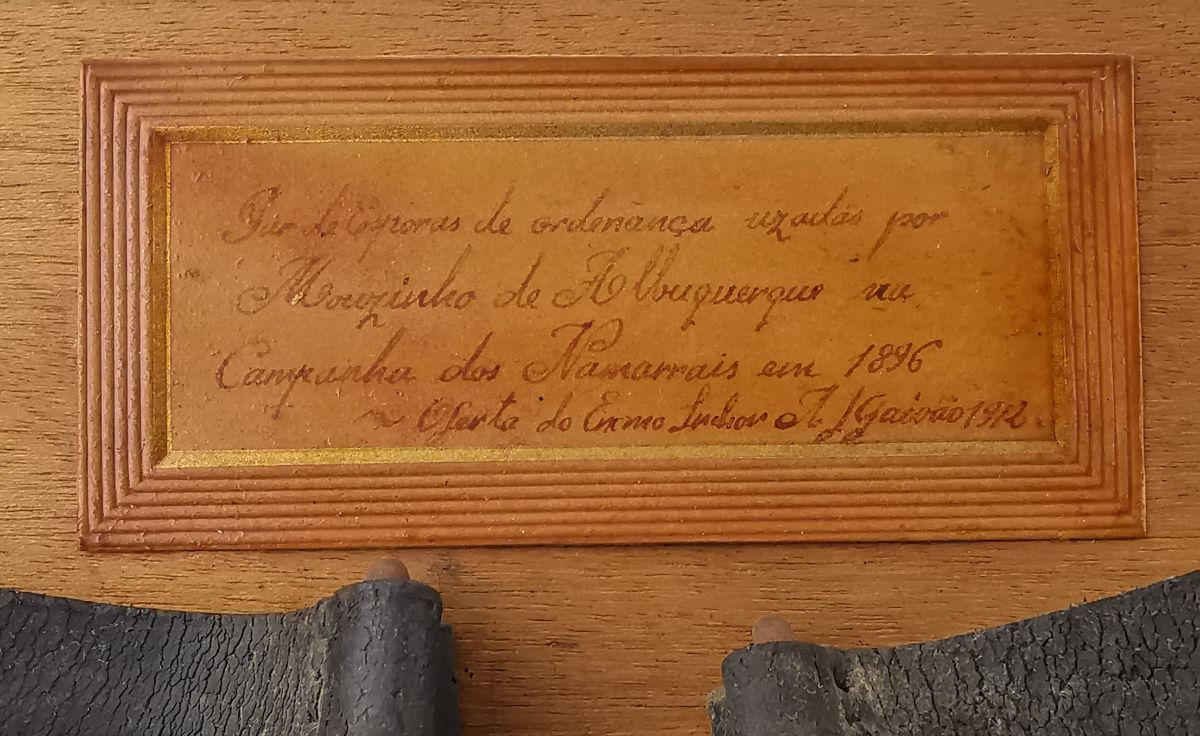 Par de Esporas de ordenança uzadas por
Mouzinho de Albuquerque na
Campanha dos Namarrais em 1896
Oferta do Exmo Senhor A J Gaivão 1912.